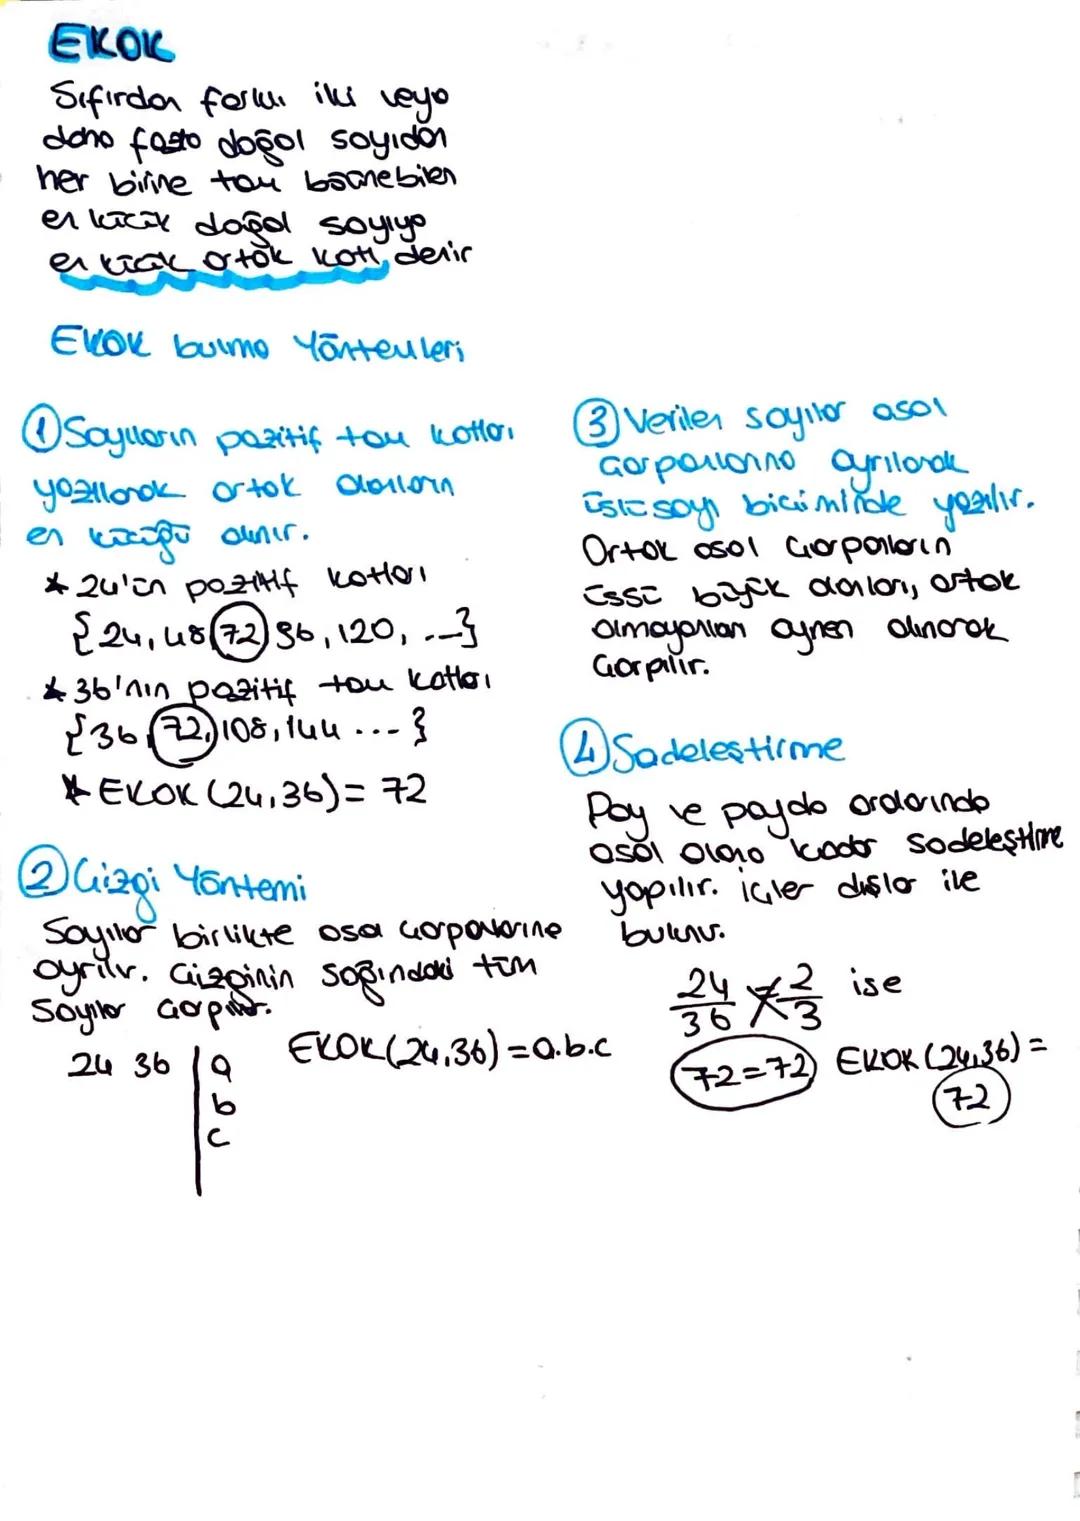 EKOK
Sıfırdan farklı iki veya
daha fazla doğal sayıdan
her birine tam bölünebilen
en küçük doğal sayıya
en küçük ortak katı denir
EKOK bulma Yöntemleri
① Sayıların pozitif tam katları
yazılarak ortak olanların
en küçüğü alınır.
* 24'ün pozitif katları
{24, 48, 72, 96, 120, ...}
* 36'nın pozitif tam katları
{36, 72, 108, 144 ...}
* EKOK (24,36) = 72
② Çizgi Yöntemi
Sayılar birlikte asal çarpanlarına
ayrılır. Çizginin sağındaki tüm
sayılar çarpılır.
24 36 | a
b
c
EKOK(24,36) = a.b.c
③ Verilen sayılar asal
çarpanlarına ayrılarak
üslü sayı biçiminde yazılır.
Ortak asal çarpanların
üssü büyük olanları, ortak
olmayanları aynen alınarak
çarpılır.
④ Sadeleştirme
Pay ve payda aralarında
asal olana kadar sadeleştirme
yapılır. içler dışlar ile
bulunur.
24/36 = 2/3 ise
72=72 EKOK (24,36) =
72